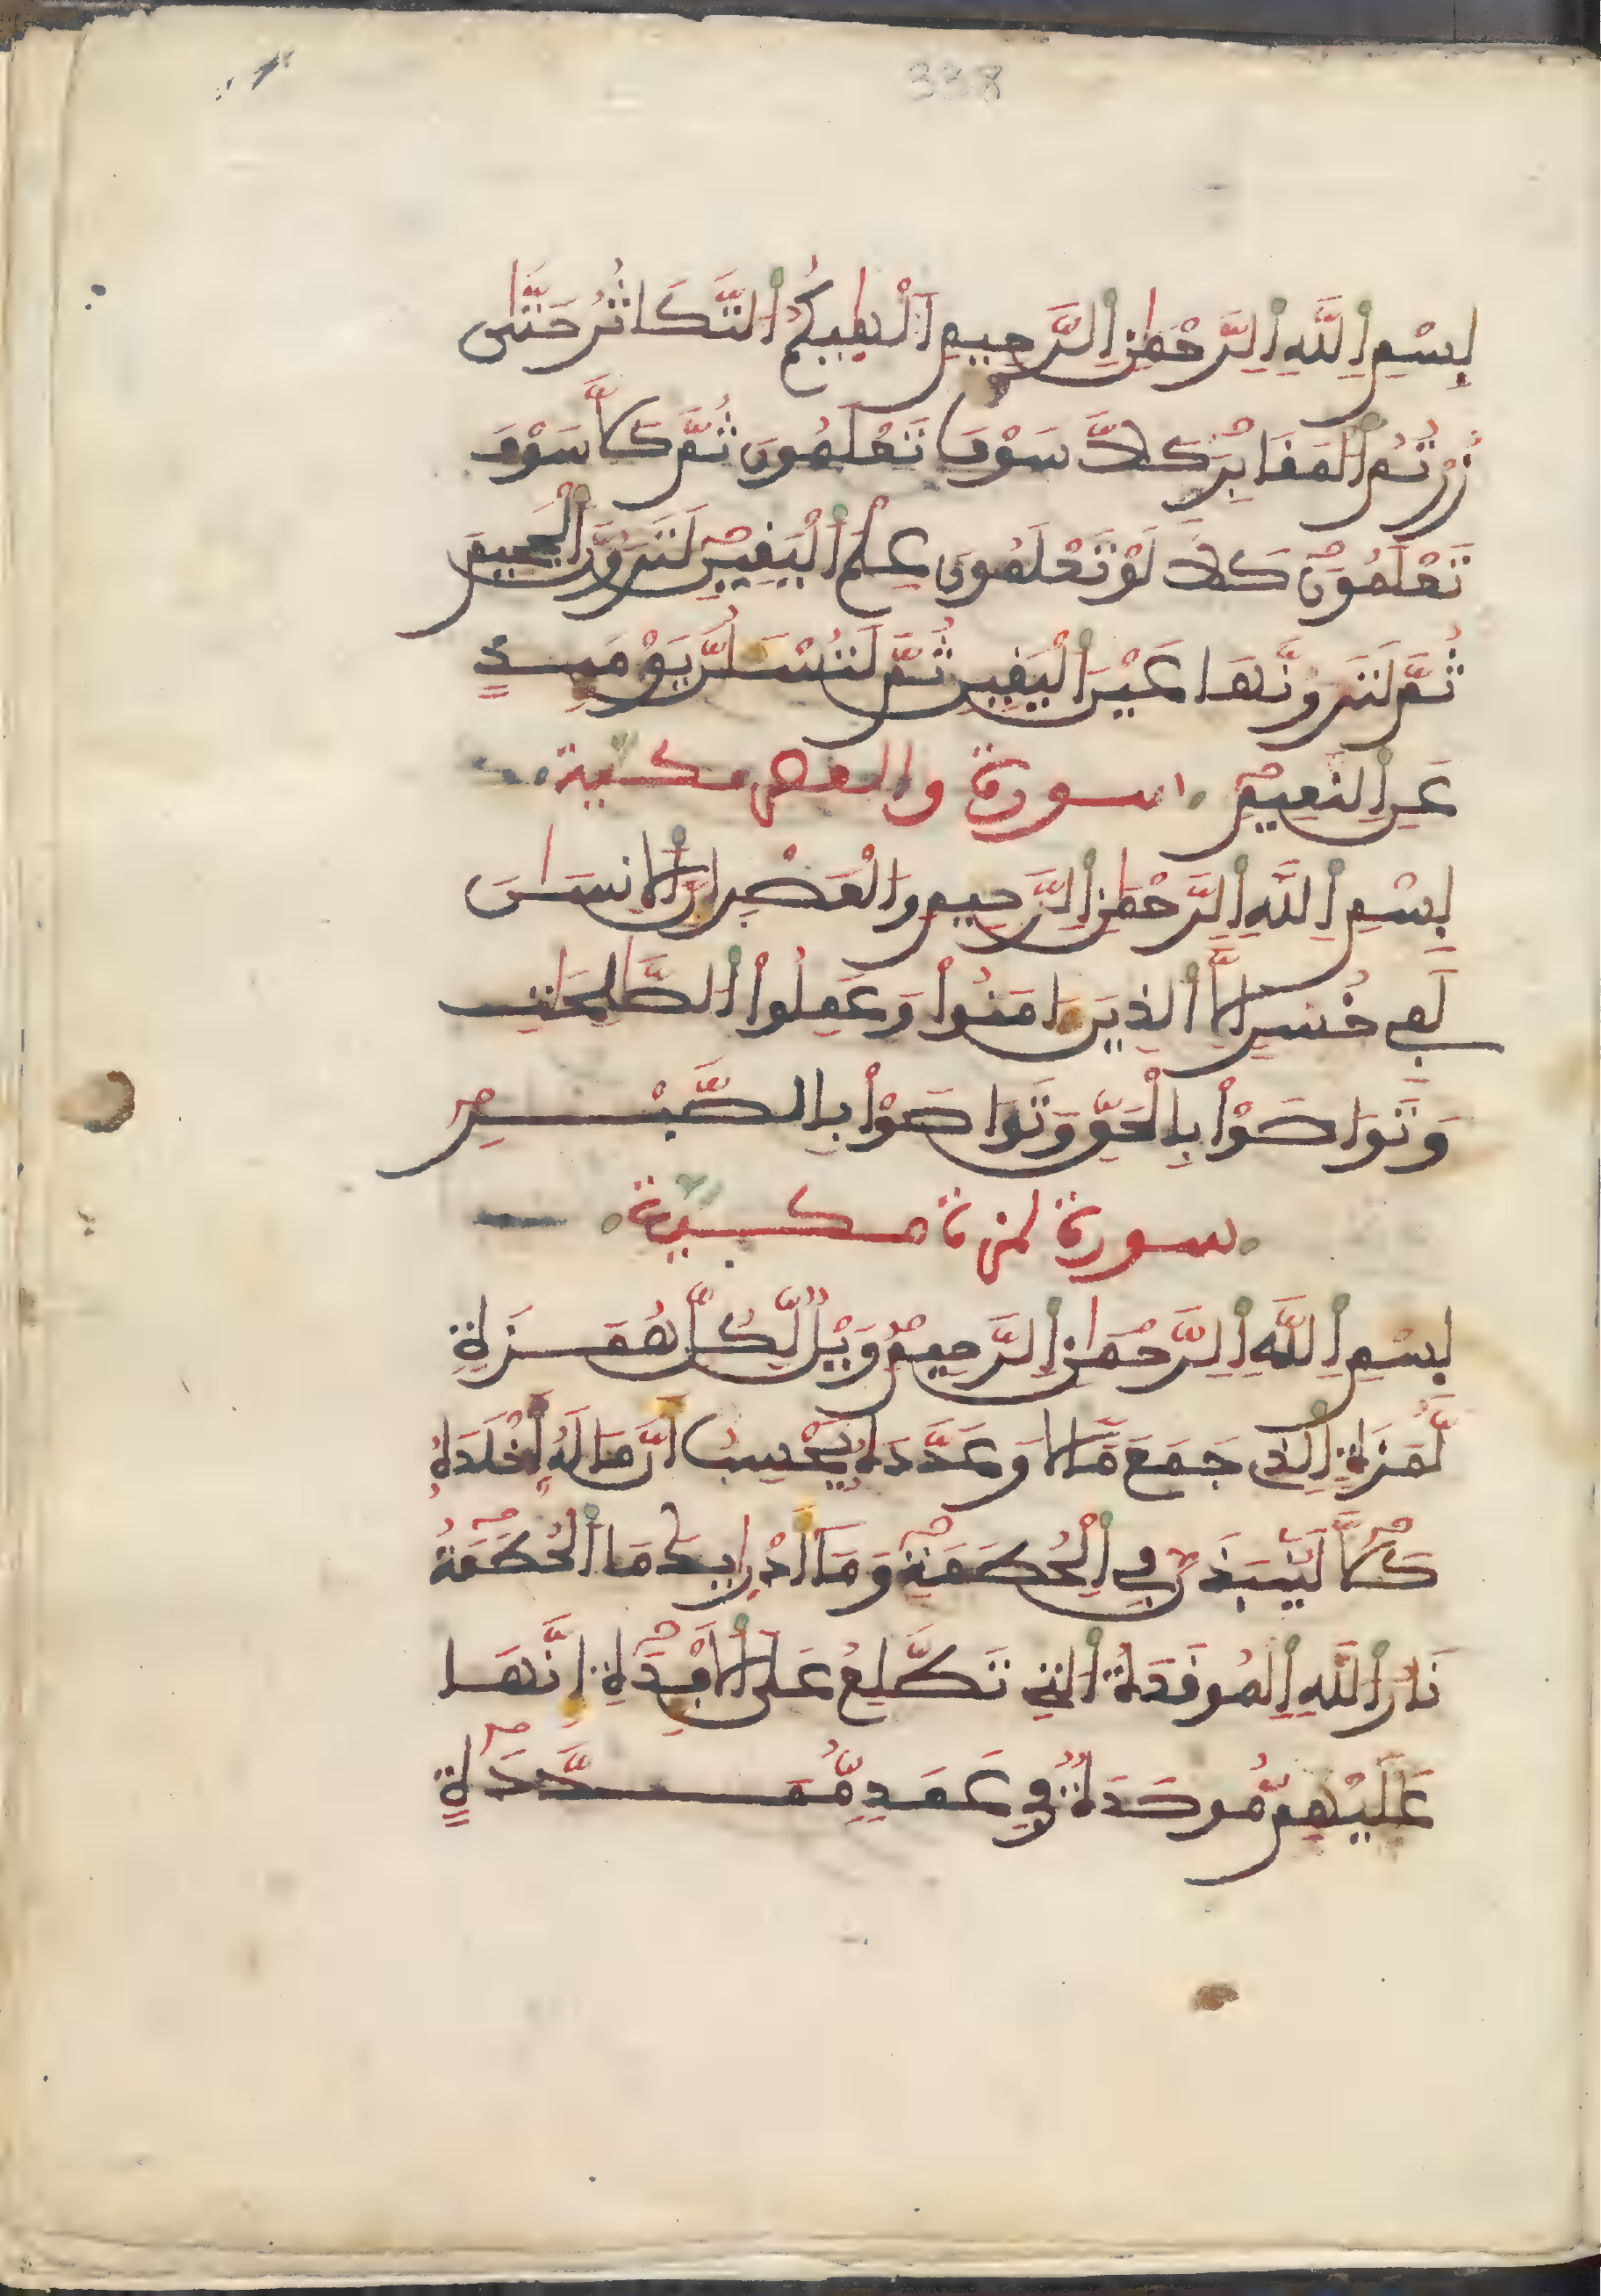 338
بِسْمِ اِ۬للَّهِ اِ۬لرَّحْمَٰنِ اِ۬لرَّحِيمِ أَلْهَىٰكُمُ اُ۬لتَّكَاثُرُ حَتَّىٰ
زُرْتُمُ اُ۬لْمَقَابِرَ كَلَّا سَوْفَ تَعْلَمُونَ ثُمَّ كَلَّا سَوْفَ
تَعْلَمُونَ كَلَّا لَوْ تَعْلَمُونَ عِلْمَ اَ۬لْيَقِينِ لَتَرَوُنَّ اَ۬لْجَحِيمَ
ثُمَّ لَتَرَوُنَّهَا عَيْنَ اَ۬لْيَقِينِ ثُمَّ لَتُسْـَٔلُنَّ يَوْمَئِذٍ
عَنِ اِ۬لنَّعِيمِ سورة والعصر مكية
بِسْمِ اِ۬للَّهِ اِ۬لرَّحْمَٰنِ اِ۬لرَّحِيمِ وَالْعَصْرِ إِنَّ اَ۬لْإِنسَٰنَ
لَفِے خُسْرٍ اِلَّا اَ۬لذِينَ ءَامَنُواْ وَعَمِلُواْ اُ۬لصَّٰلِحَٰتِ
وَتَوَاصَوْاْ بِالْحَقِّ وَتَوَاصَوْاْ بِالصَّبْرِ
سورة لمزة مكية
بِسْمِ اِ۬للَّهِ اِ۬لرَّحْمَٰنِ اِ۬لرَّحِيمِ وَيْلٌ لِّكُلِّ هُمَزَةٍ
لُّمَزَةٍ اِ۬لذِى جَمَعَ مَالًا وَعَدَّدَهُۥ يَحْسِبُ أَنَّ مَالَهُۥ أَخْلَدَهُۥ
كَلَّا لَيُنۢبَذَنَّ فِي اِ۬لْحُطَمَةِ وَمَا أَدْر۪ىٰكَ مَا اَ۬لْحُطَمَةُ
نَارُ اُ۬للَّهِ اِ۬لْمُوقَدَةُ اُ۬لتِي تَطَّلِعُ عَلَى اَ۬لْأَفْـِٕدَةِ إِنَّهَا
عَلَيْهِم مُّوصَدَةٌ فِي عَمَدٍ مُّمَدَّدَةٍ